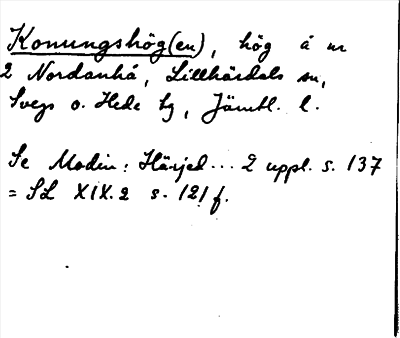 Konungshög(en), hög å nr
2 Nordanhå, Lillhärdals sn,
Svegs o. Hede tg, Jämtl. l.
Se Modin: Härjed... 2 uppl. s. 137
= SL XIX.2 s. 121 f.